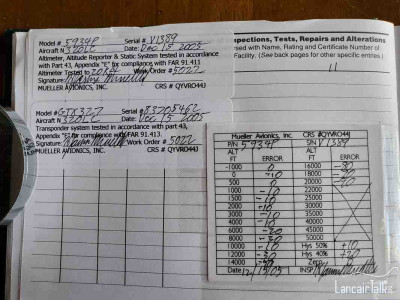 Model # 5934P Serial # V1389
Aircraft N 320LC Date: Dec 15 2005
Altimeter, Altitude Reporter & Static System tested in accordance
with Part 43, Appendix "E" for compliance with FAR 91.411
Altimeter Tested to 20K ft. Work Order # 5022
Signature:
MUELLER AVIONICS, INC. CRS # QYVRO44J
Model # GTX327 Serial # 83705462
Aircraft N 320LC Date: Dec 15 2005
Transponder system tested in accordance with part 43,
Appendix "F" for compliance with FAR 91.413.
Signature: Work Order # 5022
MUELLER AVIONICS, INC. CRS # QYVRO44J
Inspections, Tests, Repairs and Alterations
with Name, Rating and Certificate Number of
Facility. (See back pages for other specific entries.)
11
Mueller Avionics, Inc. CRS #QYVRO44J
P/N 5934P S/N V1389
ALT ALT
FT ERROR FT ERROR
-1000 0 16000 -30
0 -10 18000 -30
500 0 20000
1000 -10 22000
1500 -10 25000
2000 30000
3000 -10 35000
4000 -10 40000
6000 -20 45000
8000 50000
10000 -10 Hys 50% +10
12000 -30 Hys 40% +20
14000 Zero
Date 12/15/05 INSP
LancairTalk